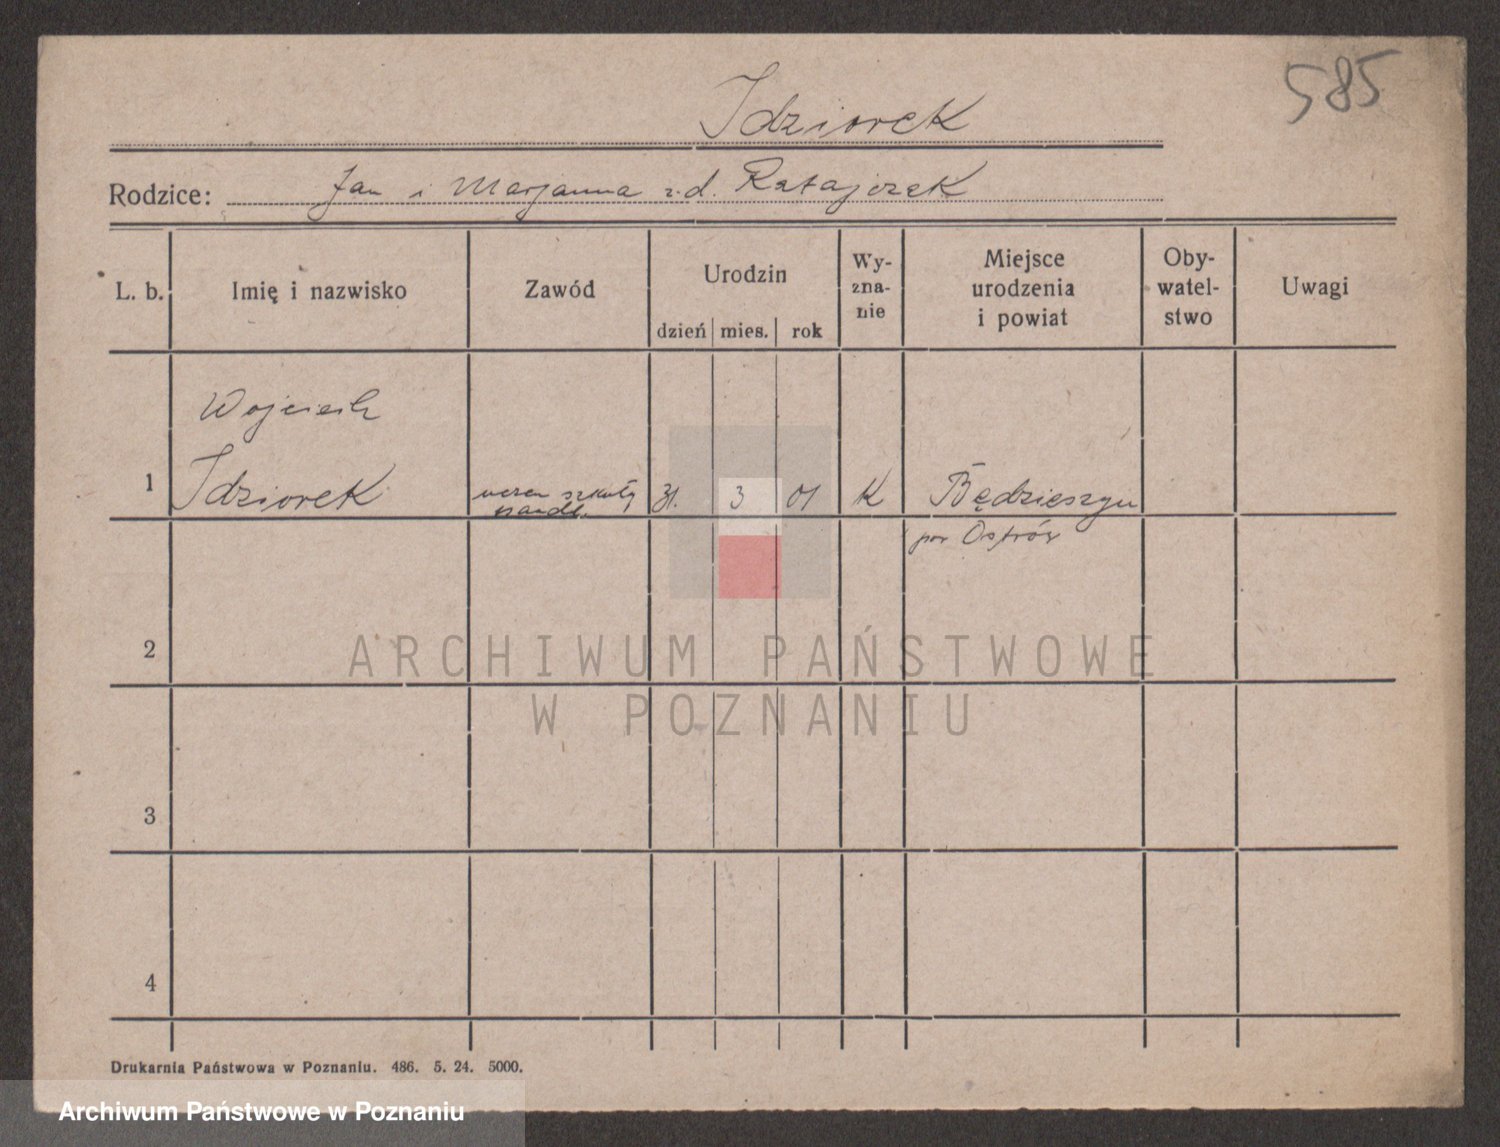 585
Idziorek
Rodzice: Jan i Marjanna z.d. Ratajczak
L. b. Imię i nazwisko Zawód Urodzin dzień mies. rok Wy-zna-nie Miejsce urodzenia i powiat Oby-watel-stwo Uwagi
Wojciech
1 Idziorek uczeń szkoły 31. 3 01 K Będzieszyn
handl.
pow Ostrów
2
ARCHIWUM PAŃSTWOWE
W POZNANIU
3
4
Drukarnia Państwowa w Poznaniu. 486. 5. 24. 5000.
Archiwum Państwowe w Poznaniu